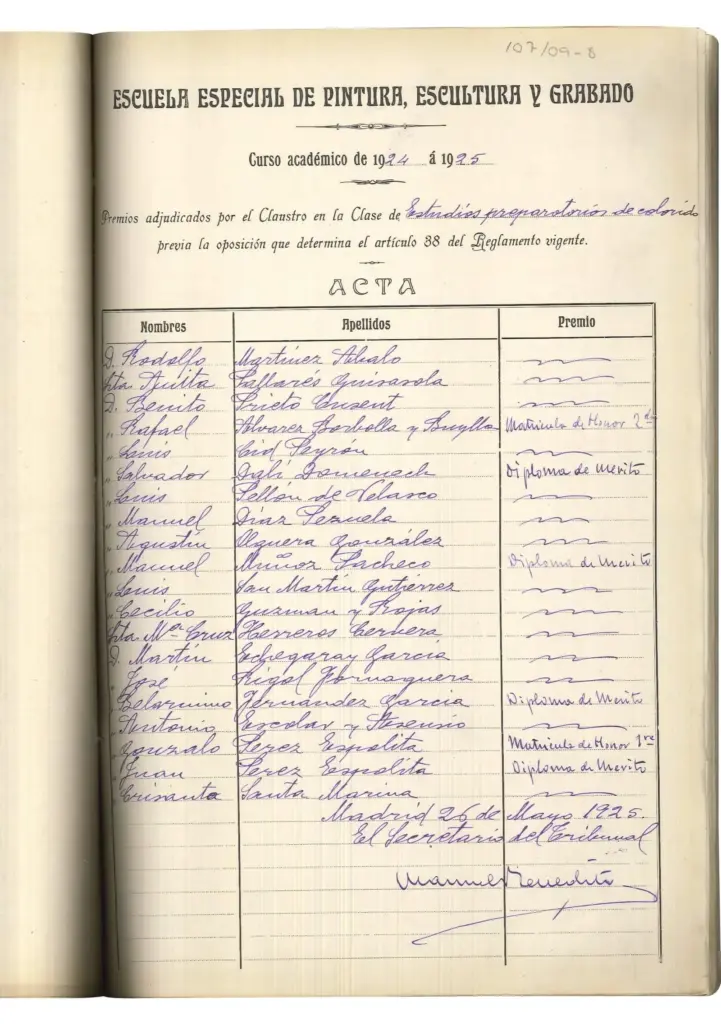 107/09-8
ESCUELA ESPECIAL DE PINTURA, ESCULTURA Y GRABADO
Curso académico de 1924 á 1925
Premios adjudicados por el Claustro en la Clase de Estudios preparatorios de colorido
previa la oposición que determina el artículo 38 del Reglamento vigente.
ACTA
Nombres Apellidos Premio
D. Rodolfo Martínez Abalo
Srta Anita Pallarés Guisasola
D. Benito Prieto Cusent
" Rafael Alvarez Borbolla y Buylla Matricula de Honor 2ª
" Luis Cid Peyrón
" Salvador Dalí Domenech Diploma de Merito
" Luis Pellón de Velasco
" Manuel Díaz Pezuela
" Agustín Olguera González
" Manuel Muñoz Pacheco Diploma de Merito
" Luis San Martín Gutiérrez
" Cecilio Guzman y Rojas
Srta Mª Cruz Herreros Cervera
D. Martín Echegaray García
" José Rigol Fornaguera
" Belarmino Fernandez Garcia Diploma de Merito
" Antonio Escolar y Asensio
" Gonzalo Perez Espolita Matricula de Honor 1ra
" Juan Perez Espolita Diploma de Merito
" Crisanta Santa Marina
Madrid 26 de Mayo 1925.
El Secretario del Tribunal
Manuel Benedito